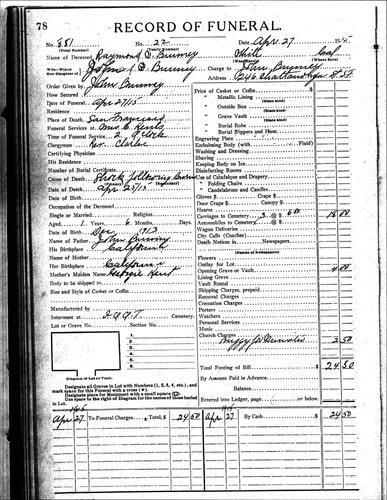 78 RECORD OF FUNERAL.
No. 881 22 Date Apr 27
(Total Number) (Yearly Number)
Name of Deceased Raymond D. Bunney White Cal
(Where Born)
Wife—Widow
Son-Daughter of Charge to John Bunney
Order Given by John Bunney
How Secured
Date of Funeral Apr 27/15
Place of Death San Francisco
Funeral Services at
Time of Funeral Service 2 O'Clock
Clergyman Rev. Clarke
Certifying Physician
His Residence
Number of Burial Certificate
Cause of Death Shock following
Date of Death Apr 25/15
Date of Birth
Occupation of the Deceased
Single or Married Religion
Aged 1 Years 6 Months Days
Date of Birth Dec 1913
Name of Father John Bunney
His Birthplace California
Name of Mother
Her Birthplace California
Mother's Maiden Name Kent
Body to be shipped to
Size and Style of Casket or Coffin
Manufactured by
Interment at Cemetery
Lot or Grave No. Section No.
Diagram of Lot or Vault.
Designate all Graves in Lot with Numbers (1, 2, 3, 4, etc.), and
mark space for this Funeral with a cross (+).
Designate place for Monument with a small square
Use space to the right of Diagram for the names of those buried
in Lot.
Price of Casket or Coffin
" Metallic Lining
(State kind)
Outside Box
(State kind)
" Grave Vault
(State kind)
" Burial Robe
(State kind)
" Burial Slippers and Hose
Engraving Plate
Embalming Body (with Fluid)
Washing and Dressing
Shaving
Keeping Body on Ice
Disinfecting Rooms
Use of Catafalque and Drapery
" Folding Chairs
" Candelabrum and Candles
Gloves $ Crape $
Door Crape Canopy $
Hearse
Carriages to Cemetery 3 @ $ 6.00 18 00
Automobiles to Cemetery @ $
Wagon Deliveries
City Calls (Coaches)
Death Notices in Newspapers
(Names of Newspapers)
Flowers
Outlay for Lot
Opening Grave or Vault 4 00
Lining Grave
Vault Rental
Shipping Charges, prepaid
Removal Charges
Cremation Charges
Porters
Watchers
Personal Services
Music
Church Charges
Buggy for Minister 2 50
Total Footing of Bill $ 24 50
By Amount Paid in Advance
Balance
Entered into Ledger, page or below.
Apr 27 To Funeral Charges, Total, $ 24 50 Apr 27 By Cash $ 24 50